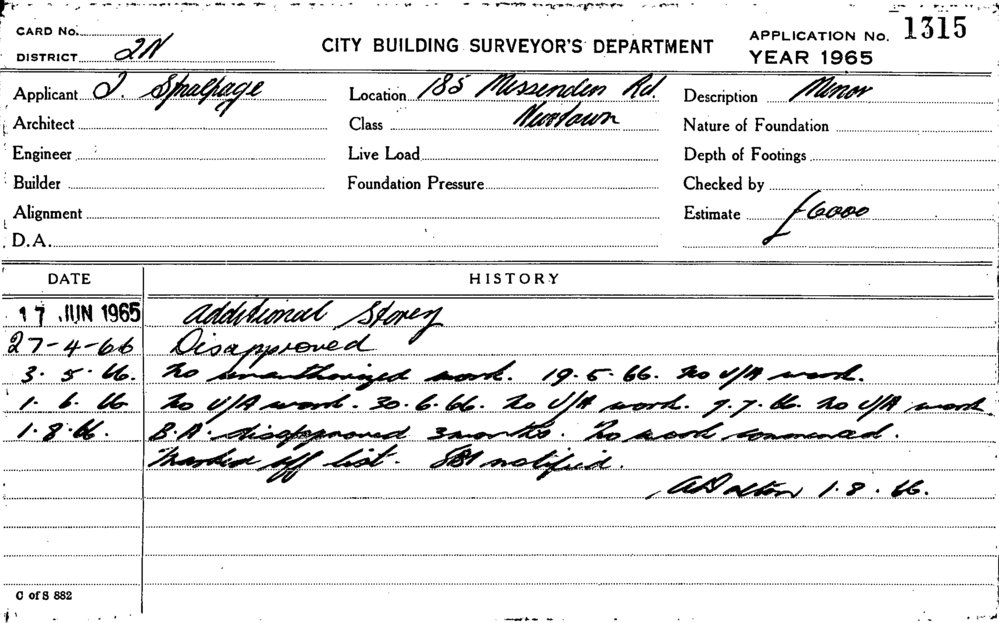 CARD No.
DISTRICT 2N
CITY BUILDING SURVEYOR'S DEPARTMENT
APPLICATION No. 1315
YEAR 1965
Applicant J. Smalpage
Location 185 Missenden Rd.
Description Minor
Architect
Class Newtown
Nature of Foundation
Engineer
Live Load
Depth of Footings
Builder
Foundation Pressure
Checked by
Alignment
Estimate £6000
D.A.
DATE HISTORY
17 JUN 1965 Additional Storey
27-4-66 Disapproved
3. 5. 66. No unauthorized work. 19.5.66. No U/A work.
1. 6. 66 No U/A work. 30.6.66. No U/A work. 7.7.66. No U/A work
1.8.66. B.A. disapproved 3 months. No work commenced.
Marked off list. notified.
ADalton 1.8.66.
C of S 882